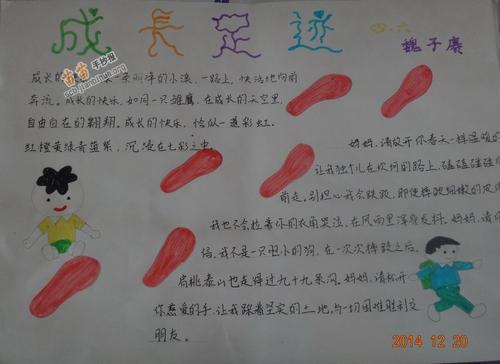 成长足迹
四·六
魏子
苗苗手抄报
scb.jianbihua.org
成长的 一条 的小溪,一路上,快活地向前
奔流。成长的快乐,如同一只雏鹰,在成长的天空里,
自由自在的翱翔。成长的快乐,恰似一道彩虹,
红橙黄绿青蓝紫,沉浸在七彩之中。
妈妈,请放开你春天一样温暖的
让我独个儿在坎坷的路上,磕磕碰碰
前走。别担心我会跌跤,即使摔跤细嫩的皮
我也不会拉着你的衣角哭泣,在风雨里浑身发抖。妈妈,请
信,我不是一只胆小的狗,在一次次摔跤之后。
肩挑泰山也走得过九十九条沟。妈妈,请松开
你慈爱的手,让我踩着坚定的土地,与一切困难胜利交
朋友。
2014 12 20